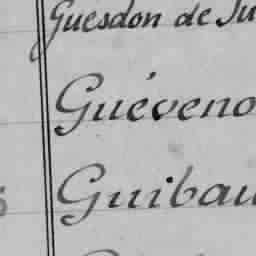 Guesdon de Ju
Guéveno
Guibau